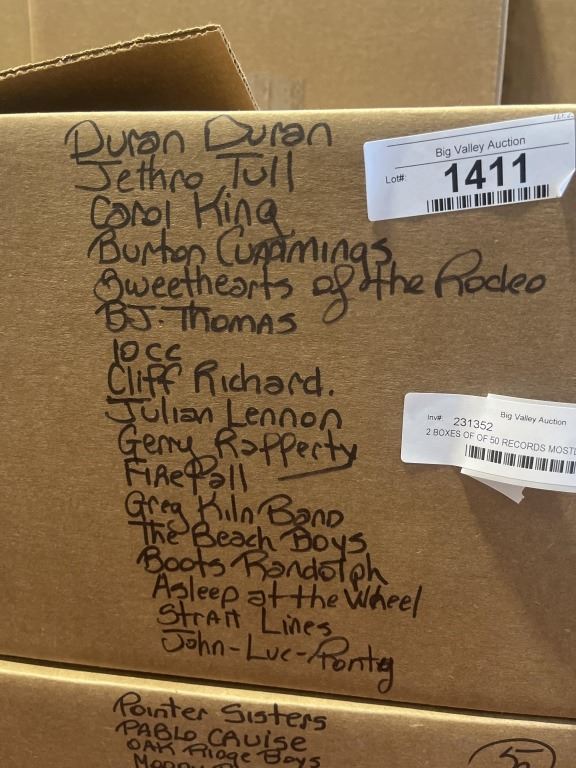 Duran Duran
Jethro Tull
Carol King
Burton Cummings
Sweethearts of the Rodeo
BJ. THOMAS
10cc
Cliff Richard.
Julian Lennon
Gerry Rafferty
FIREfall
Greg Kiln Band
The Beach Boys
Boots Randolph
Asleep at the Wheel
STRAIT Lines
John-Luc-Ponty
Big Valley Auction
Lot#: 1411
Inv#: 231352 Big Valley Auction
2 BOXES OF OF 50 RECORDS MOSTL
Pointer Sisters
PABLO CRUISE
OAK Ridge Boys